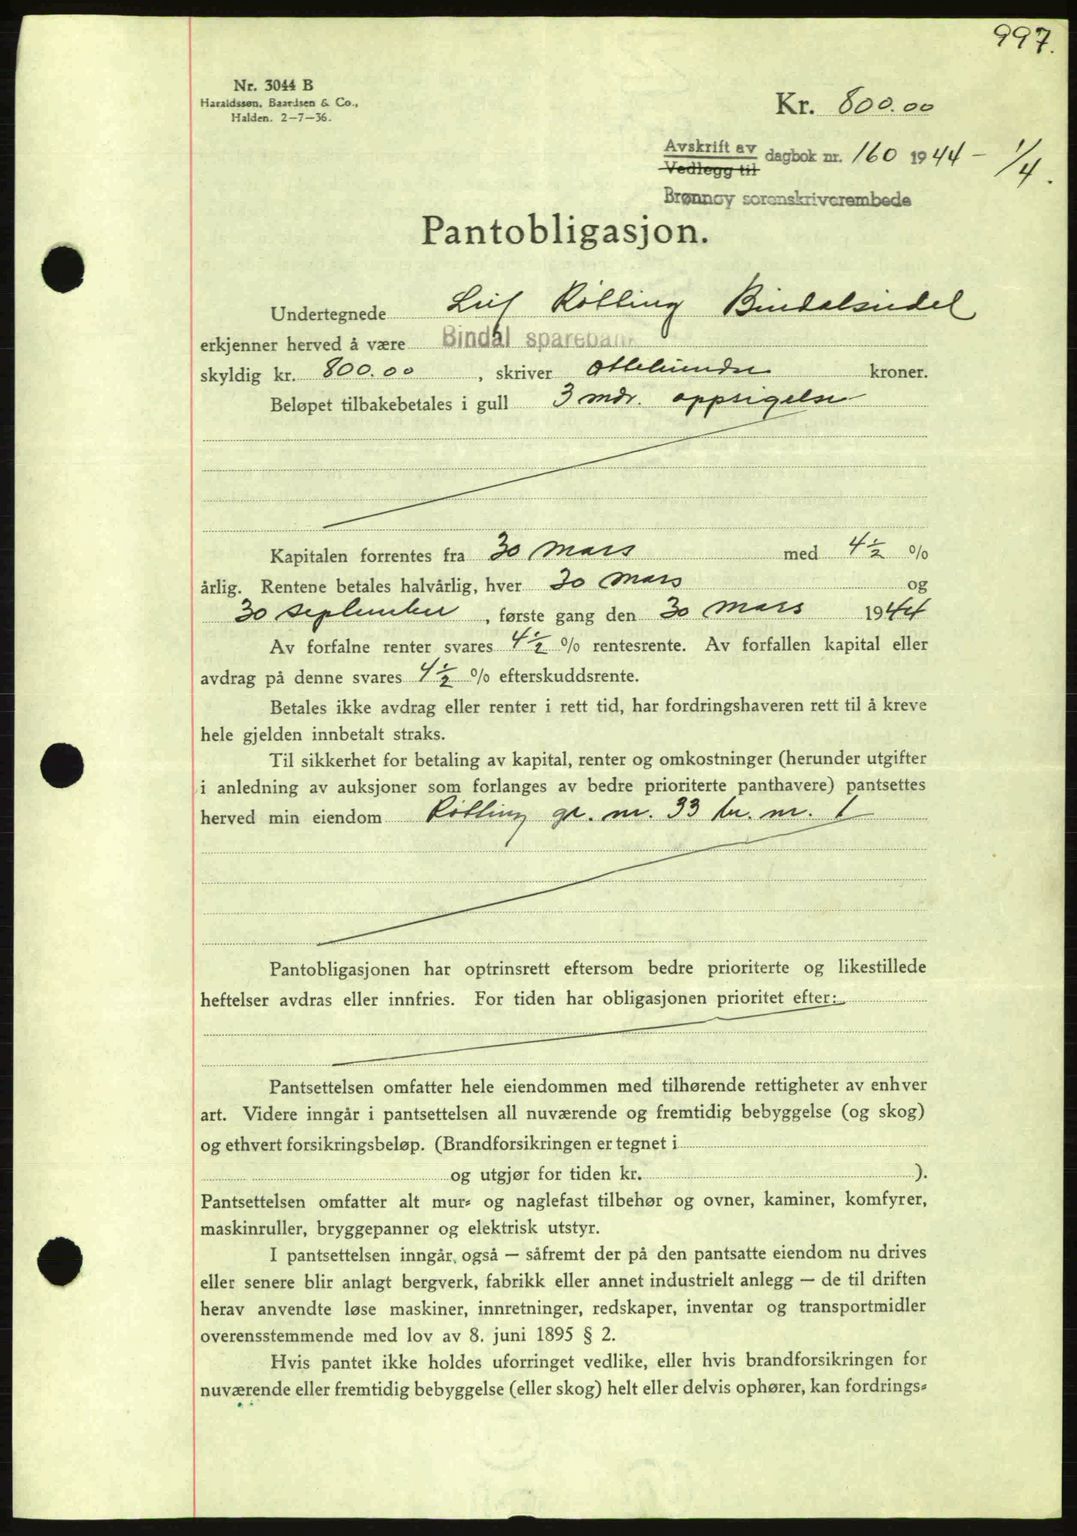 997.
Nr. 3044 B
Haraldssøn, Baardsen & Co.,
Halden. 2-7-36.
Kr. 800.00
Avskrift av
Vedlegg til
dagbok nr. 160 1944 - 1/4.
Brønnøy sorenskriverembede
Pantobligasjon.
Undertegnede Leif Røtting Bindalseidet
erkjenner herved å være Bindal sparebank
skyldig kr. 800.00, skriver åttehundre kroner.
Beløpet tilbakebetales i gull 3 mdr. oppsigelse
Kapitalen forrentes fra 30 mars med 4 1/2 %
årlig. Rentene betales halvårlig, hver 30 mars og
30 september, første gang den 30 mars 1944
Av forfalne renter svares 4 1/2 % rentesrente. Av forfallen kapital eller
avdrag på denne svares 4 1/2 % efterskuddsrente.
Betales ikke avdrag eller renter i rett tid, har fordringshaveren rett til å kreve
hele gjelden innbetalt straks.
Til sikkerhet for betaling av kapital, renter og omkostninger (herunder utgifter
i anledning av auksjoner som forlanges av bedre prioriterte panthavere) pantsettes
herved min eiendom Røtting gr. nr. 33 br. nr. 1
Pantobligasjonen har optrinsrett eftersom bedre prioriterte og likestillede
heftelser avdras eller innfries. For tiden har obligasjonen prioritet efter:
Pantsettelsen omfatter hele eiendommen med tilhørende rettigheter av enhver
art. Videre inngår i pantsettelsen all nuværende og fremtidig bebyggelse (og skog)
og ethvert forsikringsbeløp. (Brandforsikringen er tegnet i
og utgjør for tiden kr. ).
Pantsettelsen omfatter alt mur- og naglefast tilbehør og ovner, kaminer, komfyrer,
maskinruller, bryggepanner og elektrisk utstyr.
I pantsettelsen inngår også — såfremt der på den pantsatte eiendom nu drives
eller senere blir anlagt bergverk, fabrikk eller annet industrielt anlegg — de til driften
herav anvendte løse maskiner, innretninger, redskaper, inventar og transportmidler
overensstemmende med lov av 8. juni 1895 § 2.
Hvis pantet ikke holdes uforringet vedlike, eller hvis brandforsikringen for
nuværende eller fremtidig bebyggelse (eller skog) helt eller delvis ophører, kan fordrings-